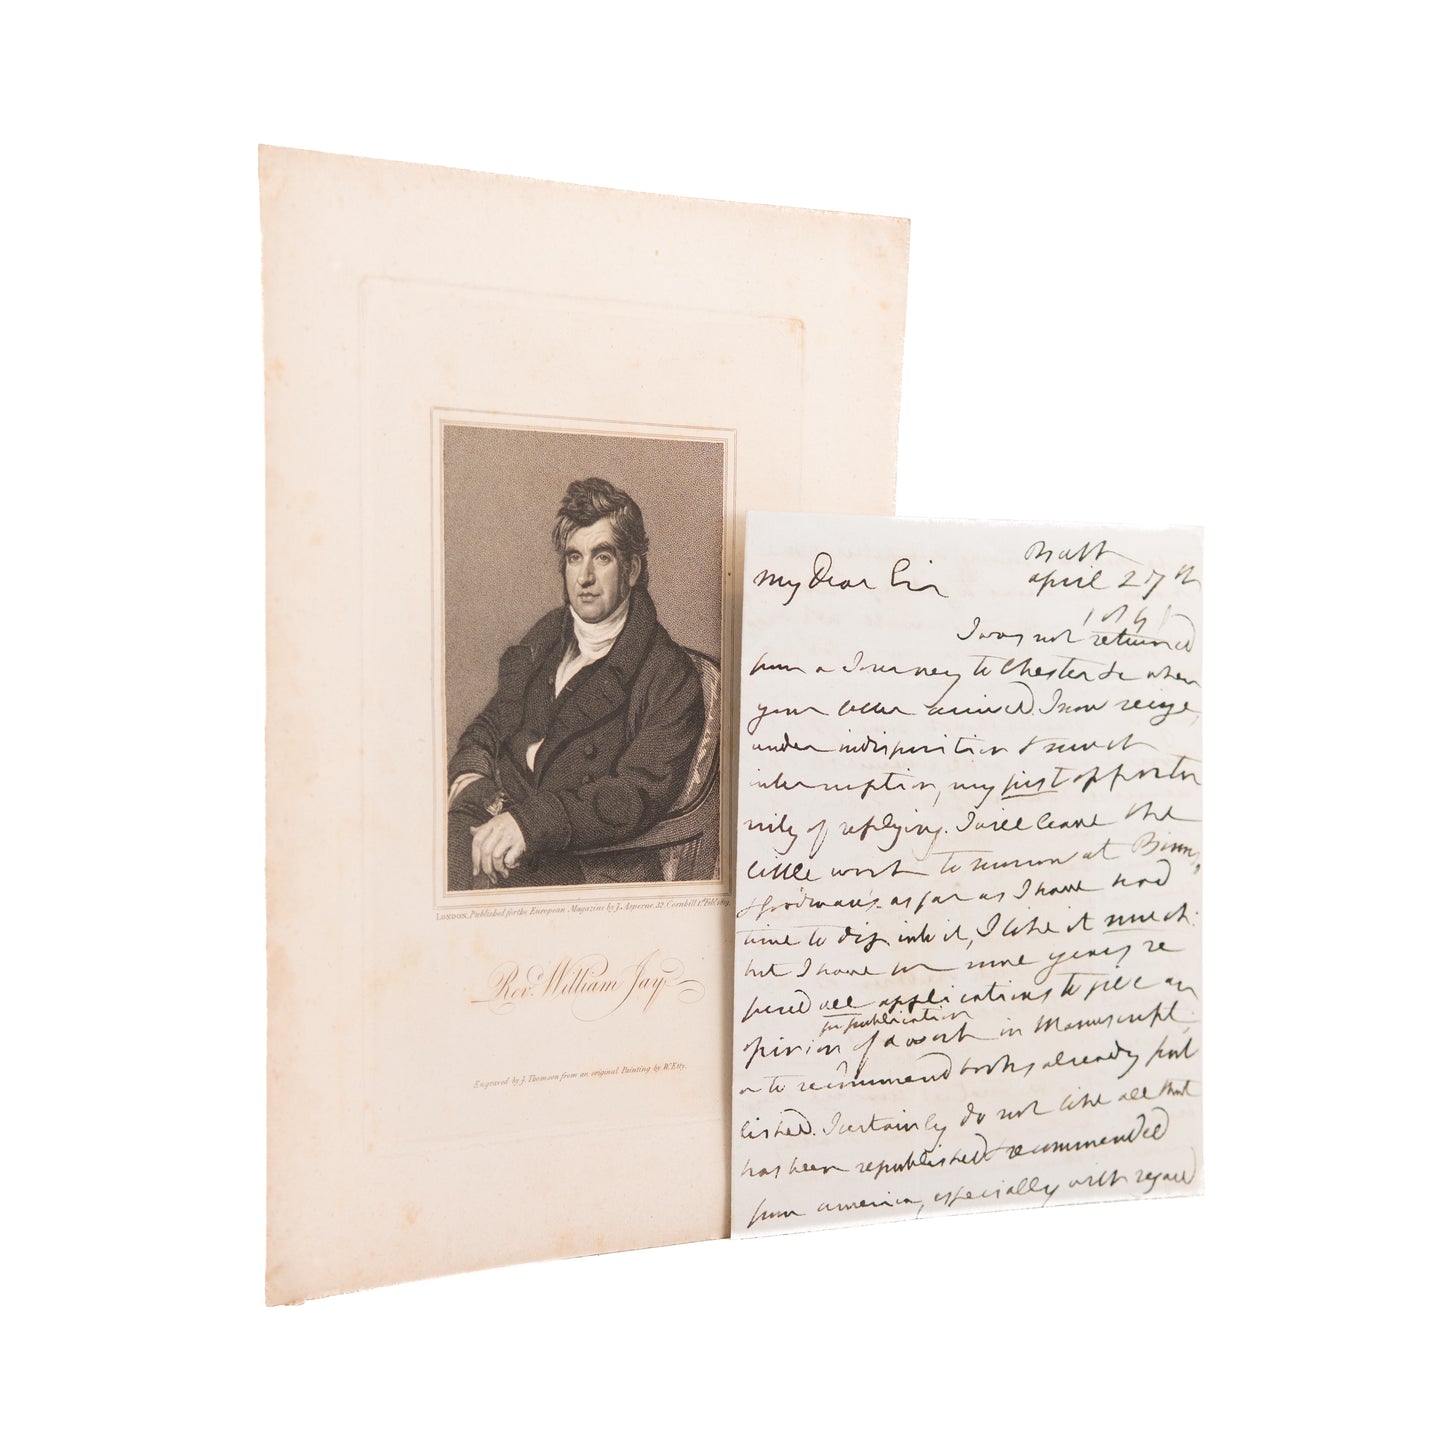 LONDON, Published for the European Magazine by J. Asperne 32, Cornhill 1st Feby. 1819.
Revd. William Jay
Engraved by J. Thomson from an original Painting by W. Etty.
Bath
My Dear Sir April 27th
I was not returned
from a Journey to Chester &c when
your letter arrived. I now seize,
under indisposition & much
interruption, my first opportu
nity of replying. I will leave the
little work to morrow at Binns
& Goodman's. as far as I have had
time to dip into it, I like it much:
but I have for some years re
fused all applications to give an
for publication
opinion of a work in Manuscript,
or to recommend books already pub
lished. I certainly do not like all that
has been republished & recommended
from America, especially with regard